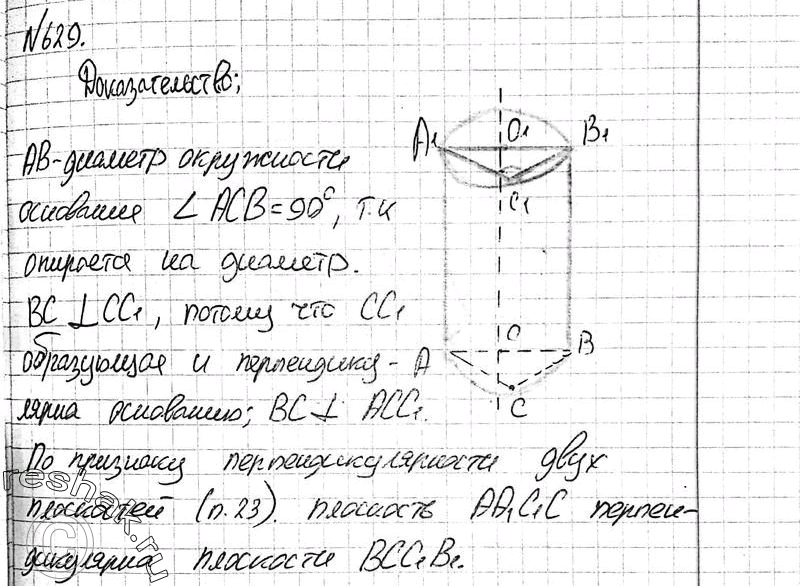 №629.
Доказательство;
AB-диаметр окружности
основание ∠ACB=90°, т.к
опирается на диаметр.
BC⊥CC₁, потому что CC₁
образующая и перпендику-
лярна основанию; BC⊥ ACC₁.
По признаку перпендикулярности двух
плоскостей (п.23). плоскость AA₁C₁C перпен-
дикулярна плоскости BCC₁B₁.
A₁ O₁ B₁
C₁
O
A B
C
© reshak.ru